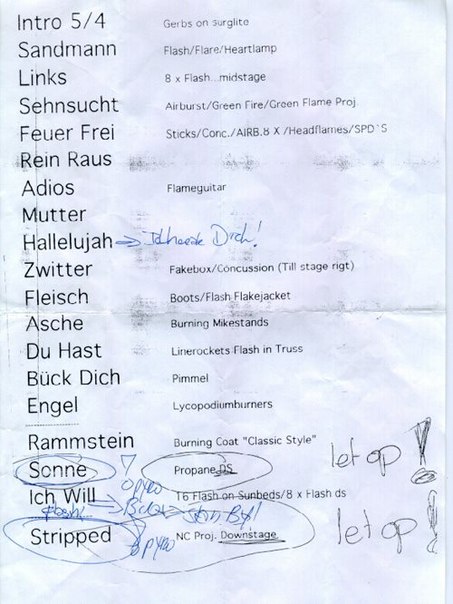 Intro 5/4 Gerbs on Surglite
Sandmann Flash/Flare/Heartlamp
Links 8 x Flash...midstage
Sehnsucht Airburst/Green Fire/Green Flame Proj.
Feuer Frei Sticks/Conc./AIRB.8 X /Headflames/SPD`S
Rein Raus
Adios Flameguitar
Mutter
Hallelujah → Dich!
Zwitter Fakebox/Concussion (Till stage rigt)
Fleisch Boots/Flash Flakejacket
Asche Burning Mikestands
Du Hast Linerockets Flash in Truss
Bück Dich Pimmel
Engel Lycopodiumburners
Rammstein Burning Coat "Classic Style"
let op!
Sonne Propane DS
Ich Will 16 Flash on Sunbeds/8 x Flash ds
Stripped NC Proj. Downstage
let op!